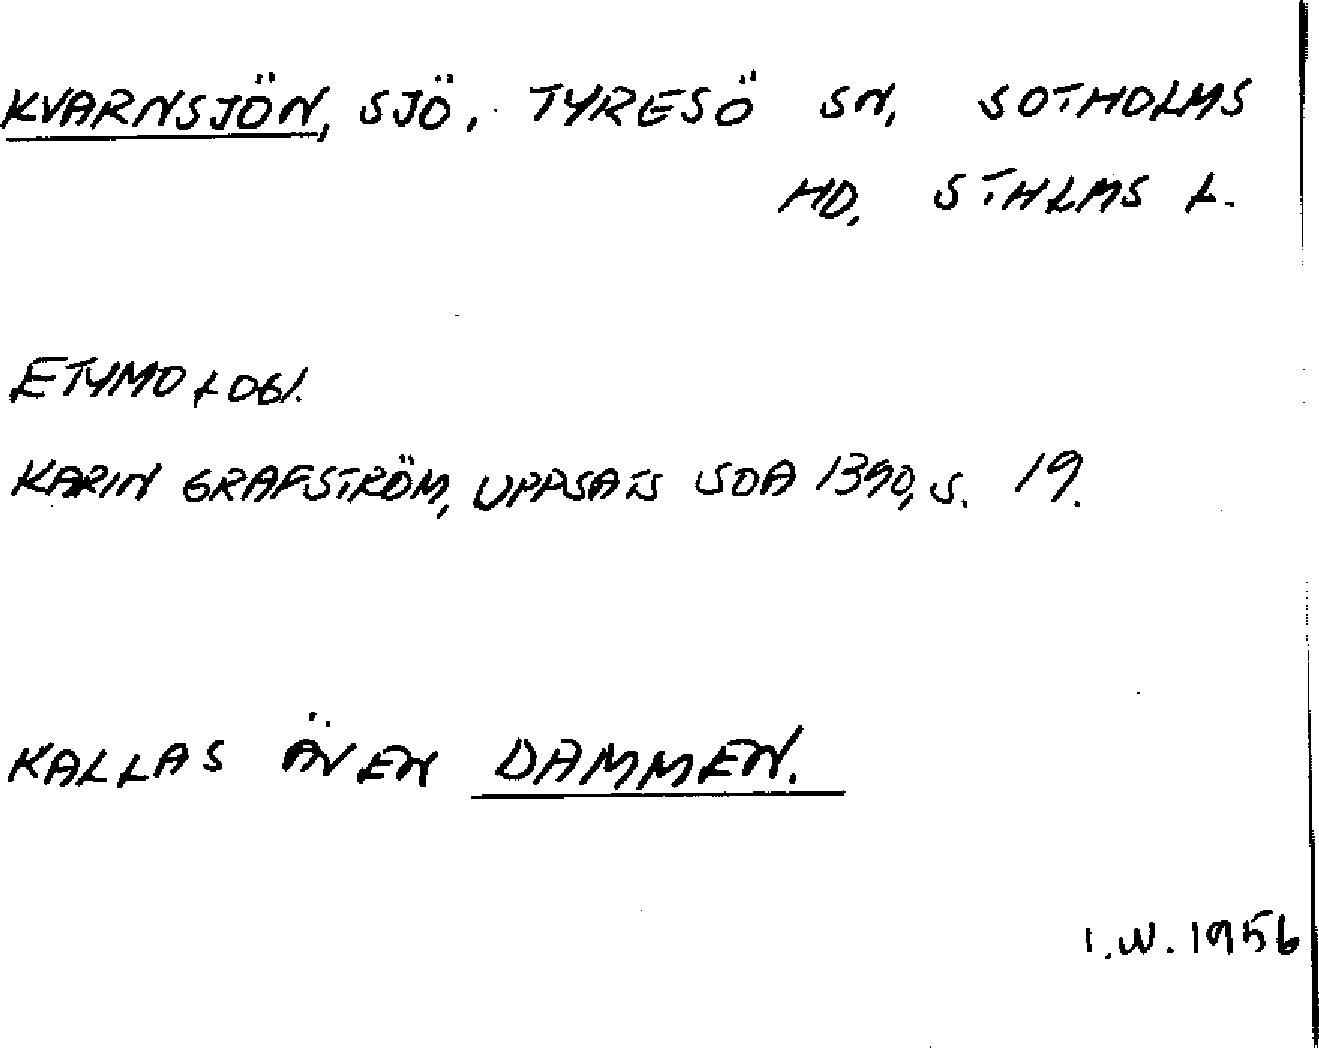 KVARNSJÖN, SJÖ, TYRESÖ SN, SOTHOLMS
HD, STHLMS L.
ETYMOLOGI.
KARIN GRAFSTRÖM, UPPSATS SOA 1390, S. 19.
KALLAS ÄVEN DAMMEN.
I.W. 1956